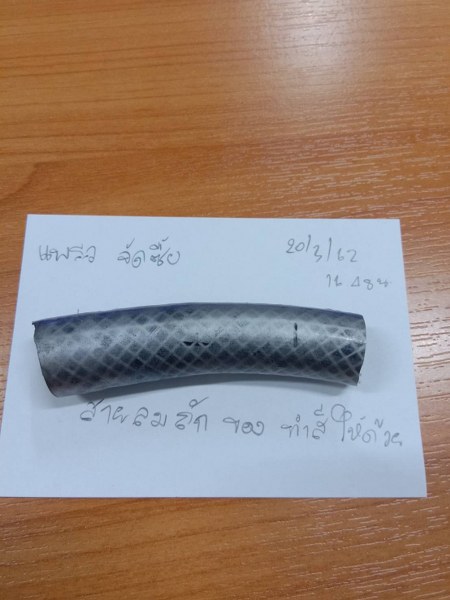 แพรว จัดซื้อ
20/3/62
สายลมถัก ของ ทำสี ให้ด้วย